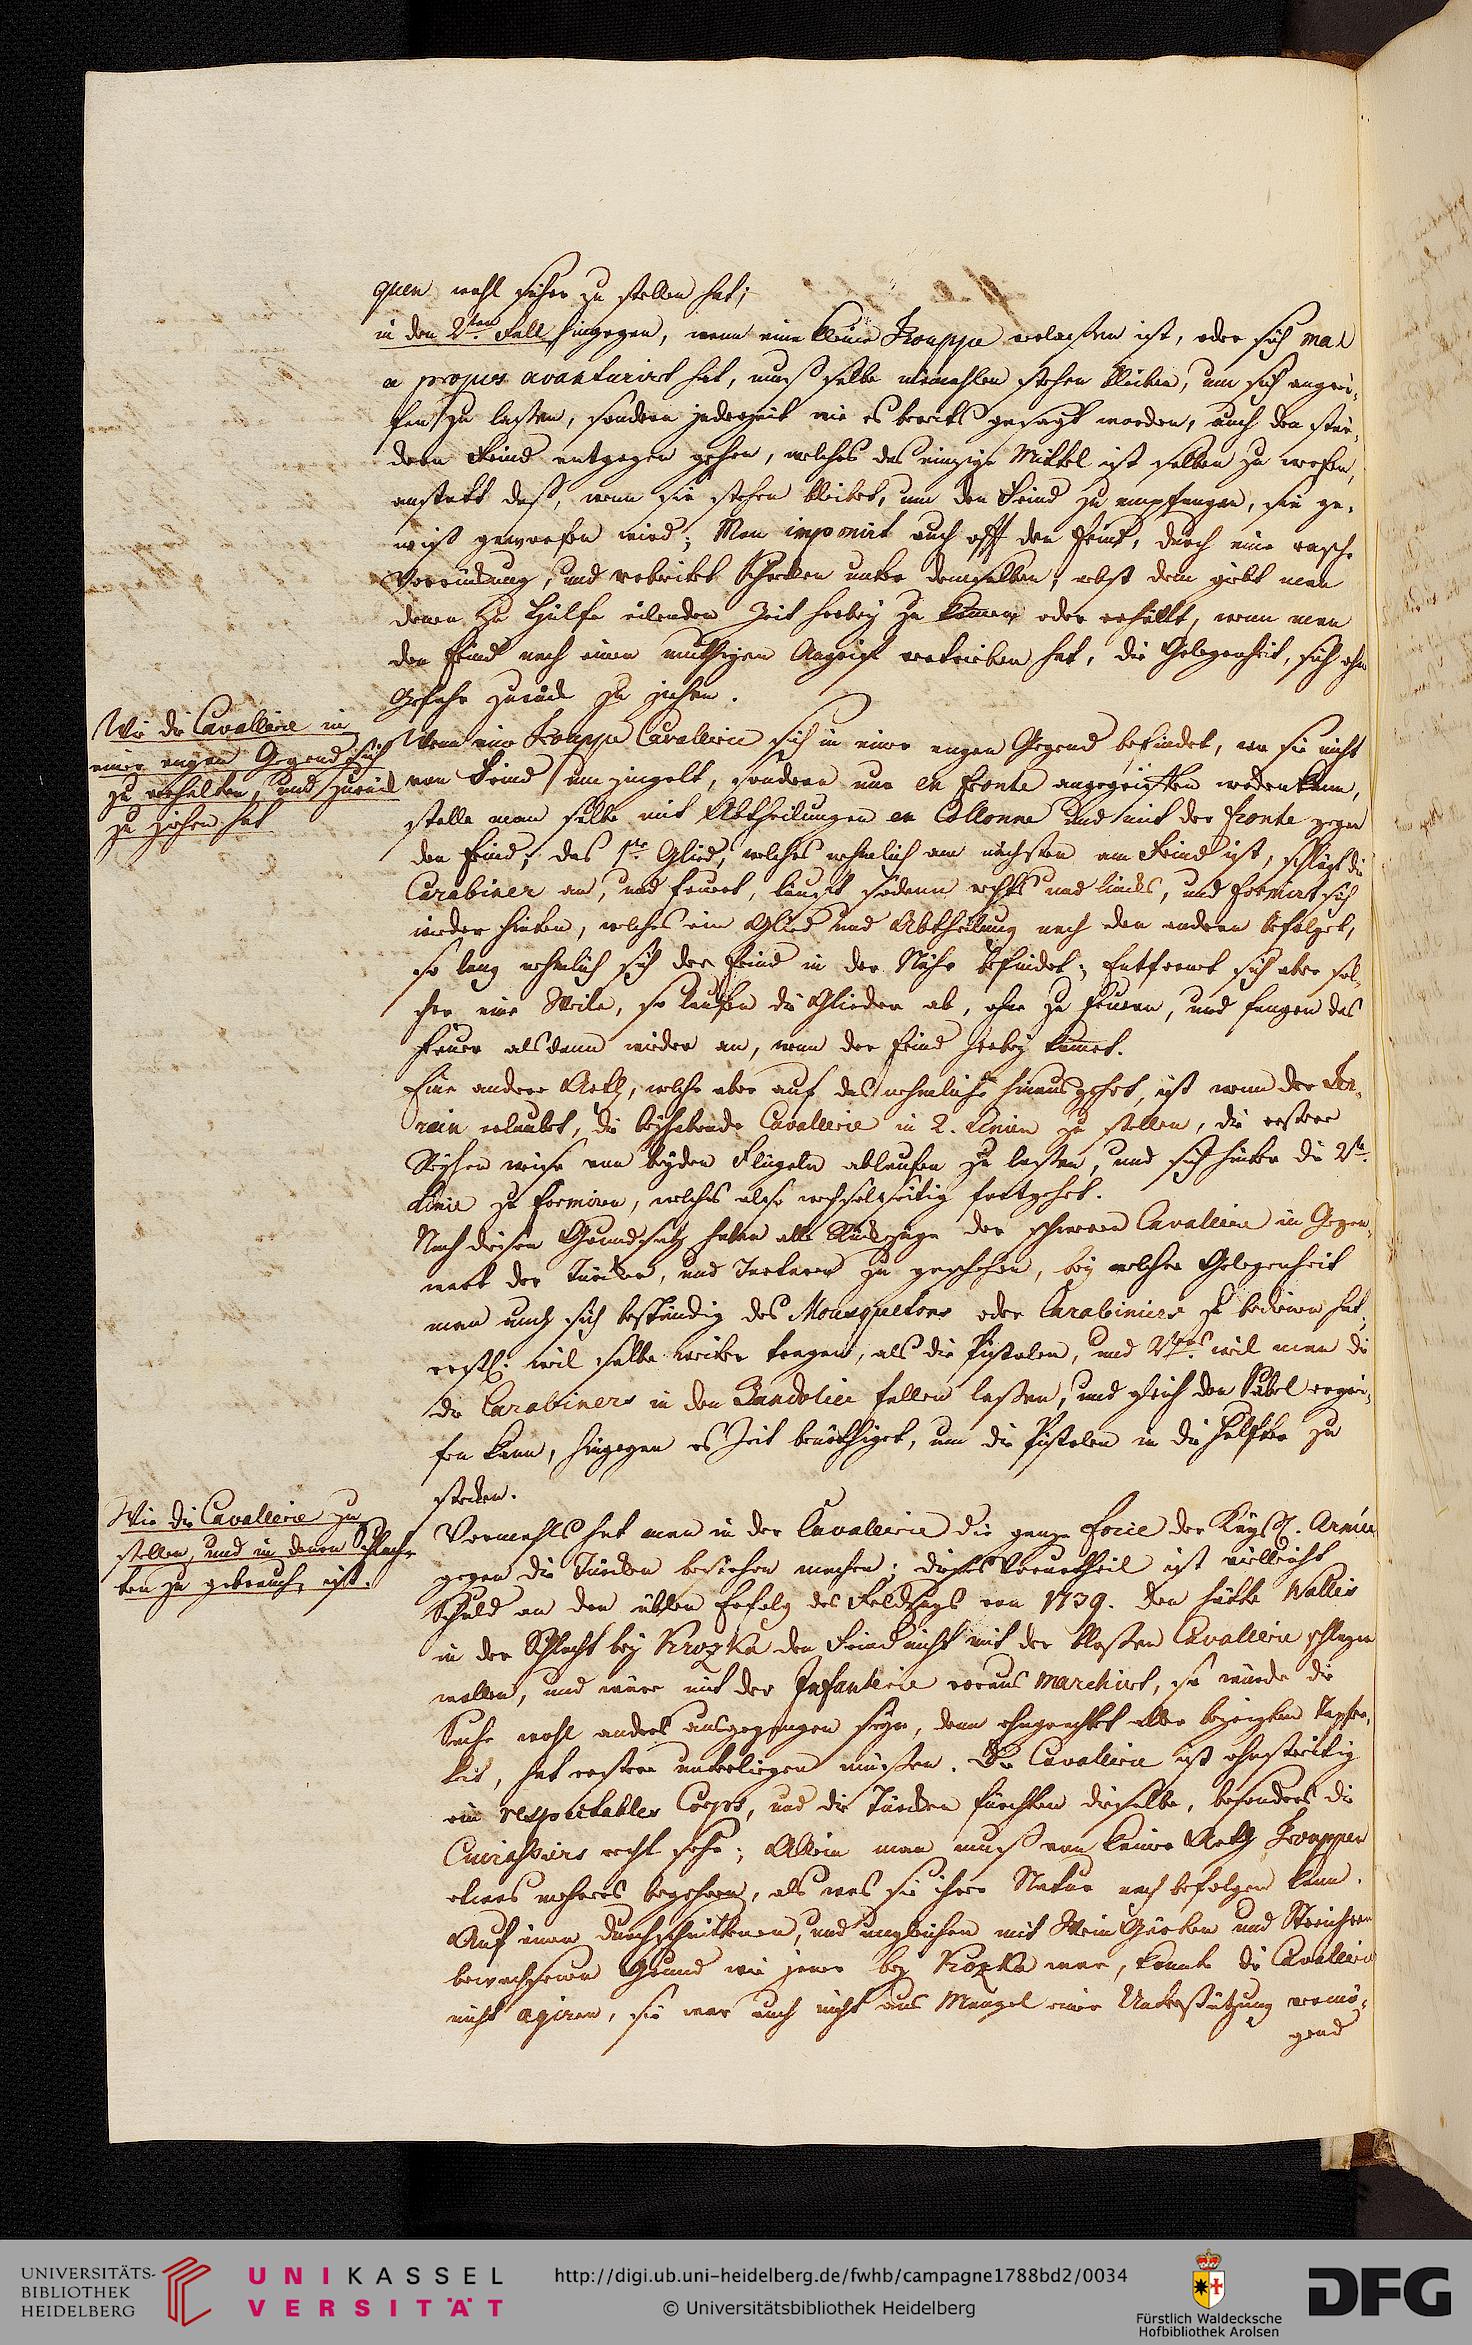 quen wohl sicher zu stellen hat;
in den 2ten Fall hingegen, wenn eine kleine Trouppe verlaßen ist, oder sich mal
a propos avanturiret hat, muß selbe niemahlen stehen bleiben, um sich angrei-
fen zu laßen, sondern jederzeit wie es bereits gesagt worden, auch den stär-
ckern Feind entgegen gehen, welches das einzige Mittel ist selben zu werfen,
anstatt daß, wenn sie stehen bleibet, um den Feind zu empfangen, sie ge-
wiß geworfen wird; Man imponirt auch oft den Feind, durch eine rasche
Vorrückung, und verbreitet Schrecken unter demselben, nebst dem giebt man
denen zu Hülfe eilenden Zeit herbey zu kommen oder erhällt, wenn man
den Feind nach einen muthigen Angriff vertrieben hat, die Gelegenheit, sich ohne
Gefahr zurück zu ziehen.
Wie die Cavallerie in
einer engen Gegend sich
zu verhalten, und zurück
zu ziehen hat
Wenn eine Trouppe Cavallerie sich in einer engen Gegend befindet, wo sie nicht
vom Feind umzingelt, sondern nur en Fronte angegriffen werden kann,
stelle man selbe mit Abtheilungen en Collonne und mit der Fronte gegen
den Feind; das 1te Glied, welches nehmlich am nächsten am Feind ist, schlägt die
Carabiner an, und feuert, lauft sodann rechts und lincks, und formirt sich
wieder hinten, welches ein Glied und Abtheilung nach den andern befolget,
so lang nehmlich sich der Feind in der Nähe befindet; Entfernt sich aber sol-
cher eine Weile, so laufen die Glieder ab, ohne zu feuern, und fangen das
Feuer alsdann wieder an, wenn der Feind herbey kommet.
Eine andere Arth, welche aber auf das nehmliche hinausgehet, ist wenn der Ter-
rain erlaubet, die beyhabende Cavallerie in 2. Linien zu stellen, die erstere
Reyhen weise von beyden Flügeln ablaufen zu laßen, und sich hinter die 2te
Linie zu formiren, welches also wechselseitig fortgehet.
Nach diesen Grundsatz haben alle Rückzüge der schweren Cavallerie in Gegen-
wart der Türcken, und Tartarn zu geschehen, bey welcher Gelegenheit
man auch sich beständig des Mousquetons oder Carabiners zu bedienen hat,
erstl. weil selbe weiter tragen, als die Pistolen, und 2tens weil man die
die Carabiners in den Bandolier fallen laßen, und gleich den Säbel ergrei-
fen kann, hingegen es Zeit benöthiget, um die Pistolen in die Hülfter zu
stecken.
Wie die Cavallerie zu
stellen, und in denen Schlach-
ten zu gebrauchen ist.
Vormahls hat man in der Cavallerie die ganze Force der Kaysl. Armée
gegen die Türcken bestehen machen; dieses Vorurtheil ist vielleicht
Schuld an den üblen Erfolg des Feldzugs von 1739. Den hätte Wallis
in der Schlacht bey Krozka den Feind nicht mit der bloßen Cavallerie schlagen
wollen, und wäre mit der Infanterie voraus marchirt, so würde die
Sache wohl anders ausgegangen seyn, denn ohngeachtet aller bezeigten Tapfer-
keit, hat erstere unterliegen müßen. Die Cavallerie ist ohnstreitig
ein respectables Corps, und die Türcken fürchten dieselbe, besonders die
Cuirassiers recht sehr; Allein man muß von keiner Arth Trouppen
etwas mehreres begehren, als was sie ihrer Natur nach befolgen kann.
Auf einen durchschnittenen, und ungleichen mit Wein Gärten und Sträuchern
bewachsenen Grund wie jener bey Krozka war, konnte die Cavallerie
nicht agiren, sie war auch nicht aus Mangel einer Unterstützung vermö-
gend
UNIVERSITÄTS-
BIBLIOTHEK
HEIDELBERG
UNIKASSEL
VERSITÄT
http://digi.ub.uni-heidelberg.de/fwhb/campagne1788bd2/0034
© Universitätsbibliothek Heidelberg
Fürstlich Waldecksche
Hofbibliothek Arolsen
DFG